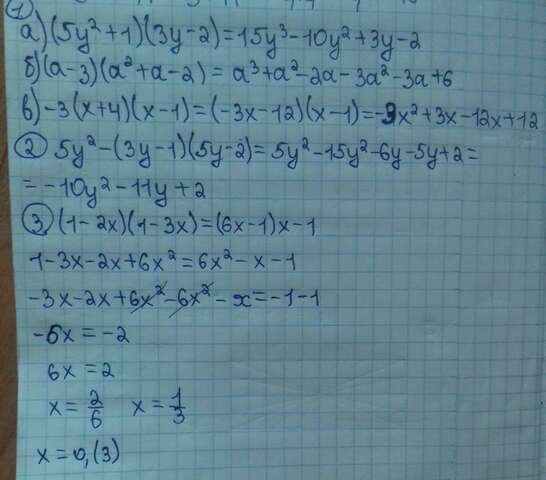 ①
а) (5y²+1)(3y-2)=15y³-10y²+3y-2
б) (a-3)(a²+a-2)=a³+a²-2a-3a²-3a+6
в) -3(x+4)(x-1)=(-3x-12)(x-1)=-3x²+3x-12x+12
② 5y²-(3y-1)(5y-2)=5y²-15y²-6y-5y+2=
=-10y²-11y+2
③ (1-2x)(1-3x)=(6x-1)x-1
1-3x-2x+6x²=6x²-x-1
-3x-2x+6x²-6x²-x=-1-1
-6x=-2
6x=2
x=2/6 x=1/3
x=0,(3)